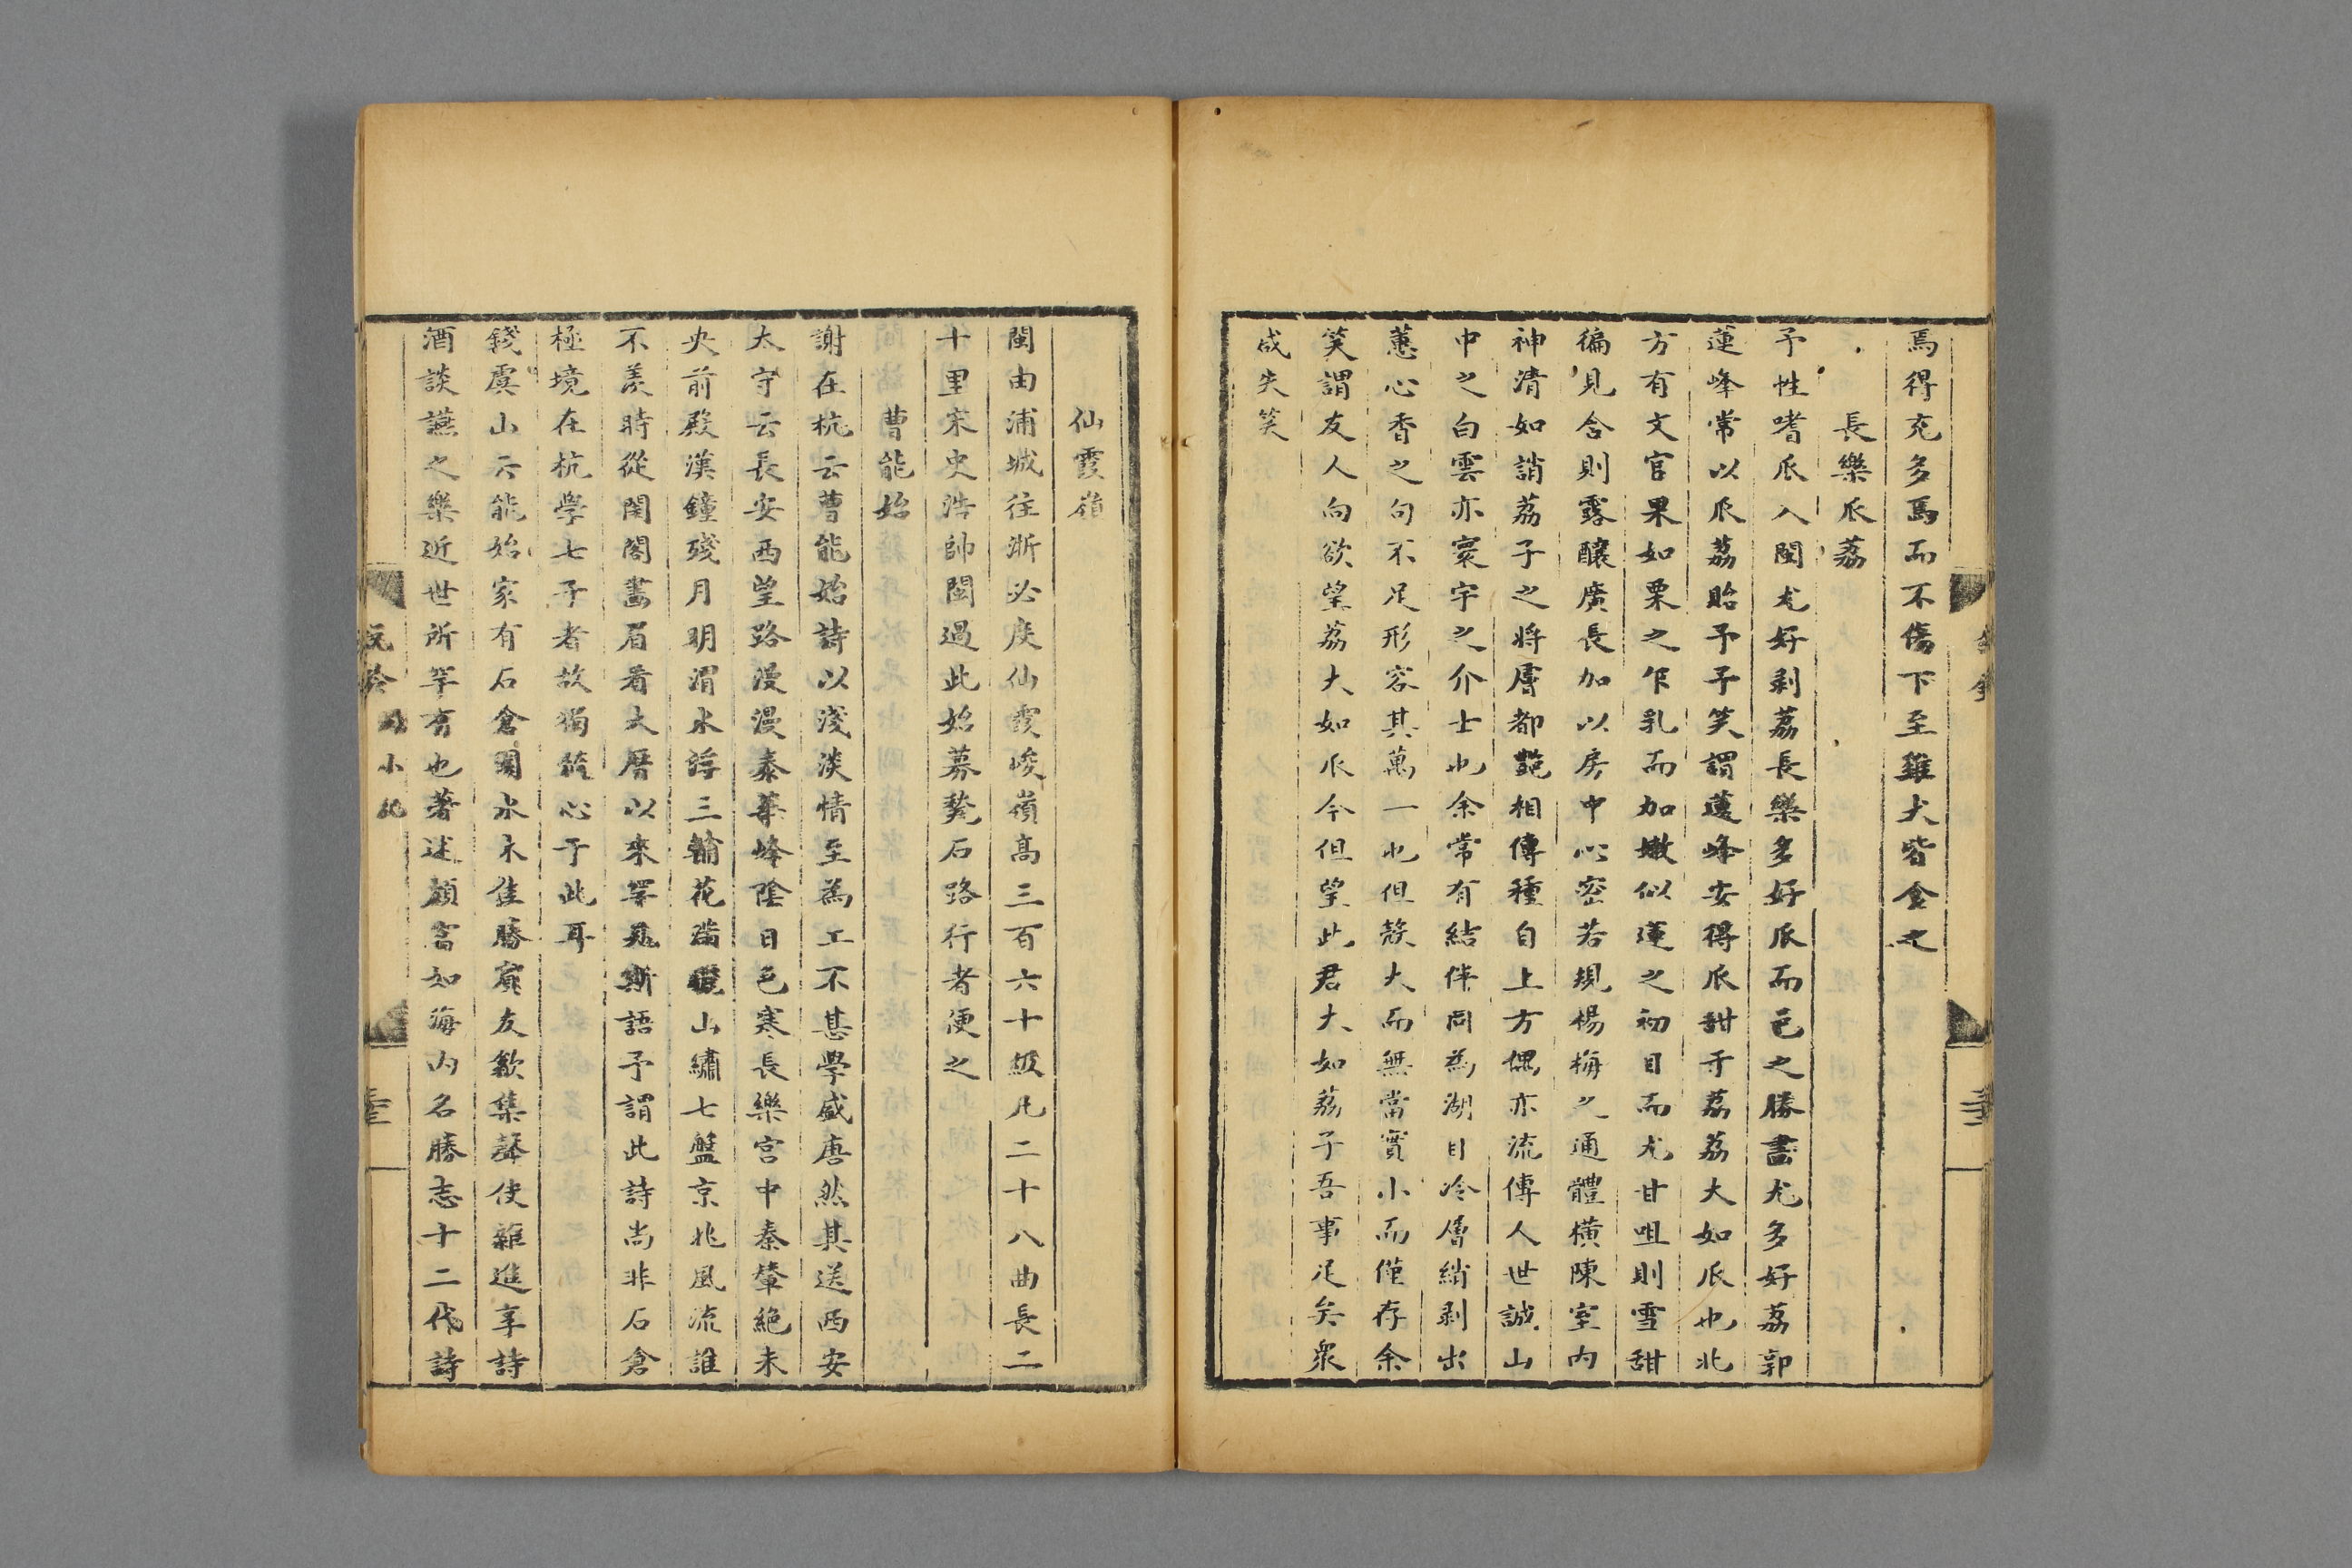 焉得充多焉而不傷下至雞犬皆食之
長樂瓜荔
予性嗜瓜入閩尤好剥荔長樂多好瓜而邑之勝畵尤多好荔郭
蓮峰常以瓜荔貽予予笑謂蓮峰安得瓜甜于荔荔大如瓜也北
方有文官果如栗之乍乳而加嫩似蓮之初目而尤甘咀則雪甜
徧見含則露釀廣長加以房中心密若規楊梅之通體橫陳室内
神清如誚荔子之將膚都艶相傳種自上方偶亦流傳人世誠山
中之白雲亦寰宇之介士也余常有結伴同為湖目冷膚綃剥出
蕙心香之句不足形容其萬一也但殼大而無當實小而僅存余
笑謂友人向欲望荔大如瓜今但望此君大如荔子吾事足矣衆
咸失笑
仙霞嶺
閩由浦城往浙必度仙霞峻嶺高三百六十級凡二十八曲長二
十里宋史浩帥閩過此始募甃石路行者便之
曹能始
謝在杭云曹能始詩以淺淡情至為工不甚學盛唐然其送西安
太守云長安西望路漫漫泰華峰陰日色寒長樂宫中秦輦絶未
央前殿漢鐘殘月明渭水浮三輔花滿山繡七盤京兆風流誰
不羨時從閨閣畵眉看大曆以來罕見斯語予謂此詩尚非石倉
極境在杭學七子者故獨心于此耳
錢虞山云能始家有石倉園水木佳勝賓友歙集聲伎雜進享詩
酒談讌之樂近世所罕有也著述頗富如海内名勝志十二代詩
小紀